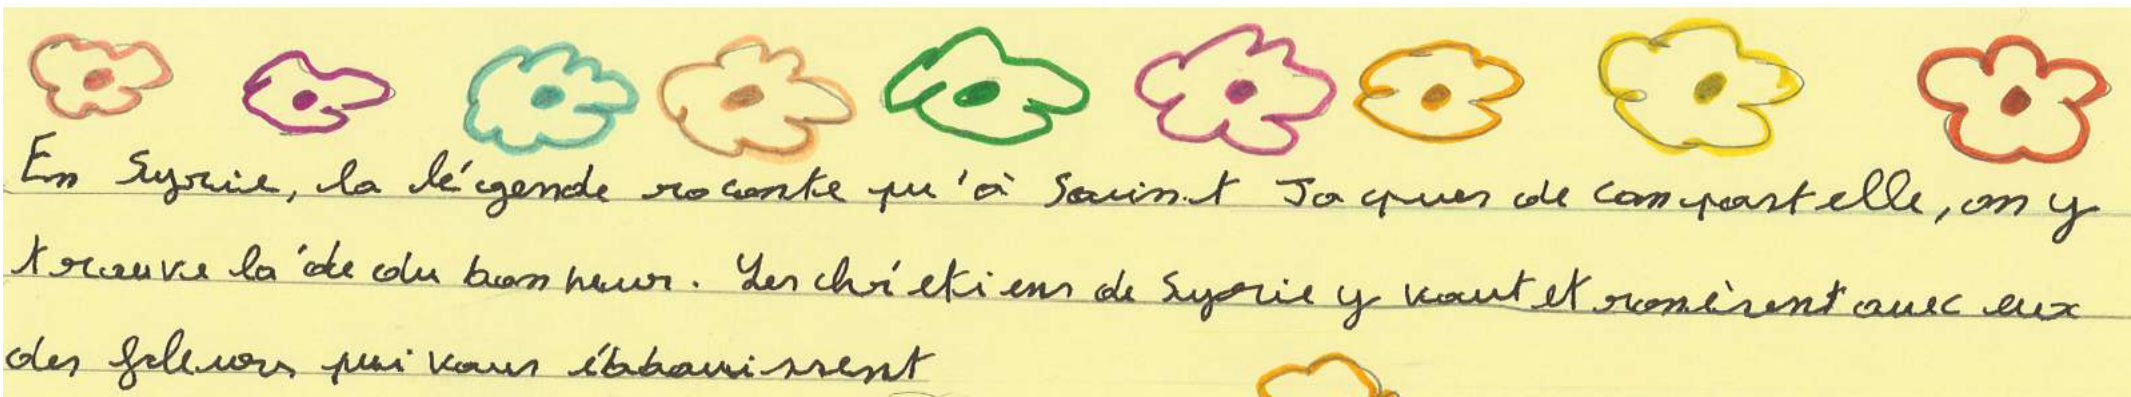 En Syrie, la légende raconte qu'à Saint Jacques de compostelle, on y
trouve la clé du bonheur. Les chrétiens de Syrie y vont et ramènent avec eux
des fleurs qui vous éblouissent